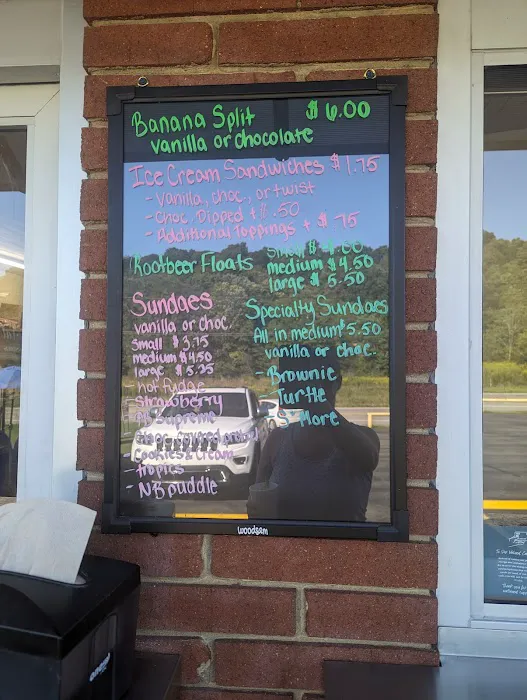 Banana Split $6.00
vanilla or chocolate
Ice Cream Sandwiches $1.75
- Vanilla, choc., or twist
- Choc. Dipped + $.50
- Additional toppings + $.75
Rootbeer Floats small $4.00
medium $4.50
large $5.50
Sundaes
vanilla or choc.
small $3.75
medium $4.50
large $5.25
- hot fudge
- strawberry
Supreme
- Cookies & Cream
- tropics
- NB puddle
Specialty Sundaes
All in medium $5.50
vanilla or choc.
- Brownie
Turtle
S'More
woodsam